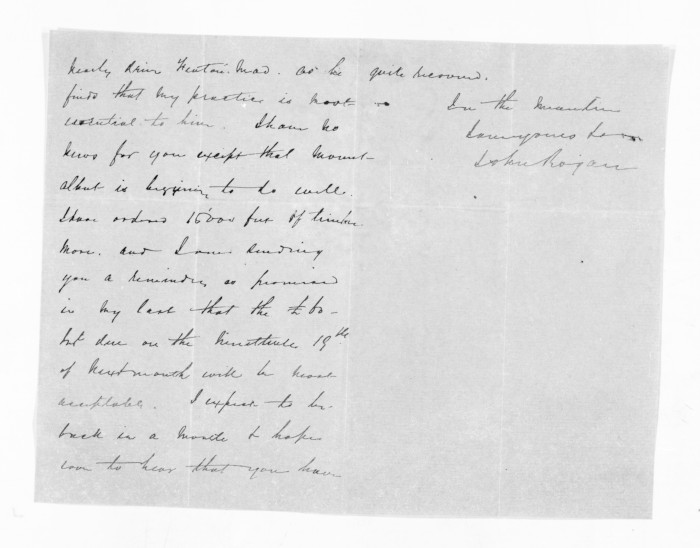 nearly drive Fenton mad. as he
finds that my practice is most
essential to him. I have no
news for you except that Mount-
albert is beginning to do well.
I have ordered 15000 feet of timber
more. and I am sending
you a reminder as promised
in my last that the £60-
due on the 19th
of next month will be most
acceptable. I expect to be
back in a month & hope
soon to hear that you have
quite recovered.
In the meantime
I am yours
John Rogan